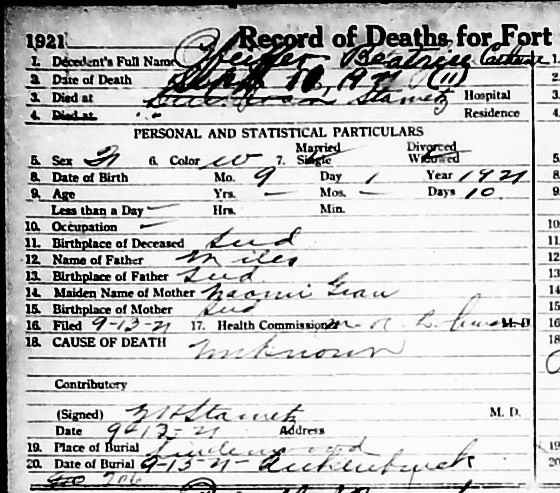 1921 Record of Deaths for Fort
1. Decedent's Full Name Beatrice
2. Date of Death Sept 10, 1921 (11)
3. Died at Hospital
4. Died at Residence
PERSONAL AND STATISTICAL PARTICULARS
Married Divorced
5. Sex 6. Color W 7. Single Widowed
8. Date of Birth Mo. 9 Day 1 Year 1921
9. Age Yrs. — Mos. — Days 10
Less than a Day — Hrs. Min.
10. Occupation —
11. Birthplace of Deceased Ind
12. Name of Father Miles
13. Birthplace of Father Ind
14. Maiden Name of Mother Naomi
15. Birthplace of Mother Ind
16. Filed 9-13-21 17. Health Commissioner M. D.
18. CAUSE OF DEATH Unknown
Contributory
(Signed) Stametz M. D.
Date 9-13-21 Address
19. Place of Burial Lindenwood
20. Date of Burial 9-13-21-